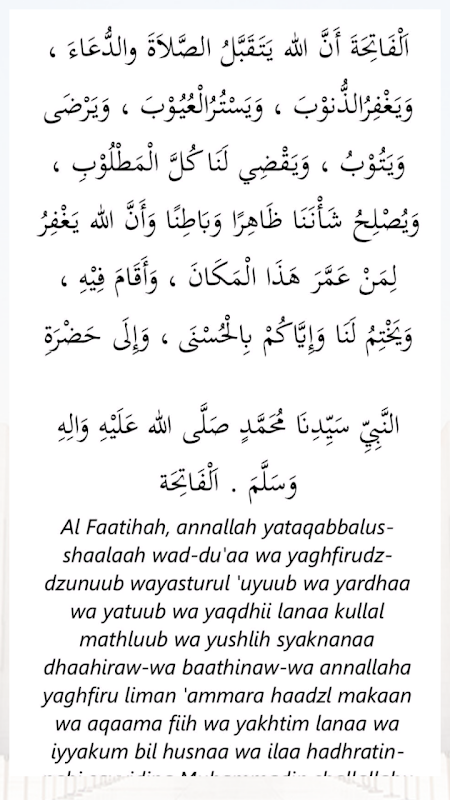 اَلْفَاتِحَةَ أَنَّ الله يَتَقَبَّلُ الصَّلاَةَ والدُّعَاءَ ،
وَيَغْفِرُالذُّنوْبَ ، وَيَسْتُرُالْعُيُوْبَ ، وَيَرْضَى
وَيَتُوْبُ ، وَيَقْضِي لَنَا كُلَّ الْمَطْلُوْبِ ،
وَيُصْلِحُ شَأْنَنَا ظَاهِرًا وَبَاطِنًا وَأَنَّ الله يَغْفِرُ
لِمَنْ عَمَّرَ هَذَا الْمَكَانَ ، وَأَقَامَ فِيْهِ ،
وَيَخْتِمُ لَنَا وَإِيَّاكُمْ بِالْحُسْنَى ، وَإِلَى حَضْرَةِ
النَّبِيِّ سَيِّدِنَا مُحَمَّدٍ صَلَّى الله عَلَيْهِ وَالِهِ
وَسَلَّمَ . اَلْفَاتِحَة
Al Faatihah, annallah yataqabbalus-
shaalaah wad-du'aa wa yaghfirudz-
dzunuub wayasturul 'uyuub wa yardhaa
wa yatuub wa yaqdhii lanaa kullal
mathluub wa yushlih syaknanaa
dhaahiraw-wa baathinaw-wa annallaha
yaghfiru liman 'ammara haadzl makaan
wa aqaama fiih wa yakhtim lanaa wa
iyyakum bil husnaa wa ilaa hadhratin-